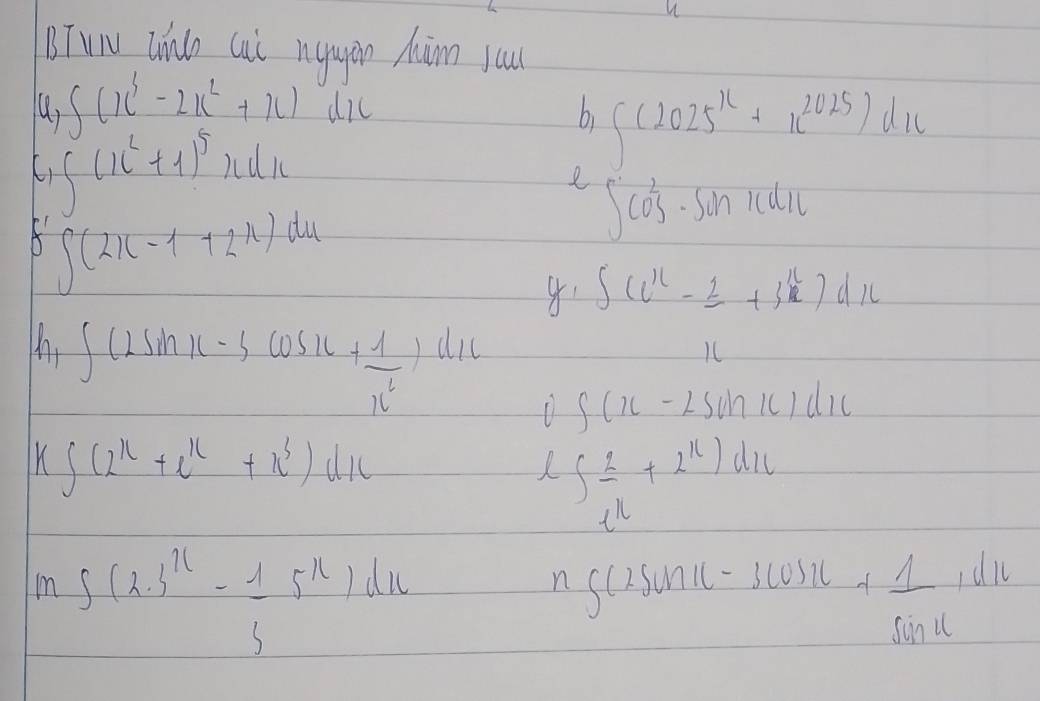 BTVN tính các nguyên hàm sau
a, ∫(x³ - 2x² + x) dx
b, ∫(2025^x + x^2025) dx
c, ∫(x² + 1)⁵ x dx
e ∫cos² . sin x dx
f ∫(2x - 1 + 2^x) dx
g, ∫(e^x - 2/x + 3^x) dx
h, ∫(2 sin x - 3 cos x + 1/x²) dx
i ∫(x - 2 sin x) dx
k ∫(2^x + e^x + x³) dx
l ∫ 2/e^x + 2^x) dx
m ∫(2.3^x - 1/3 5^x) dx
n ∫(2 sin x - 3 cos x + 1/sin x) dx